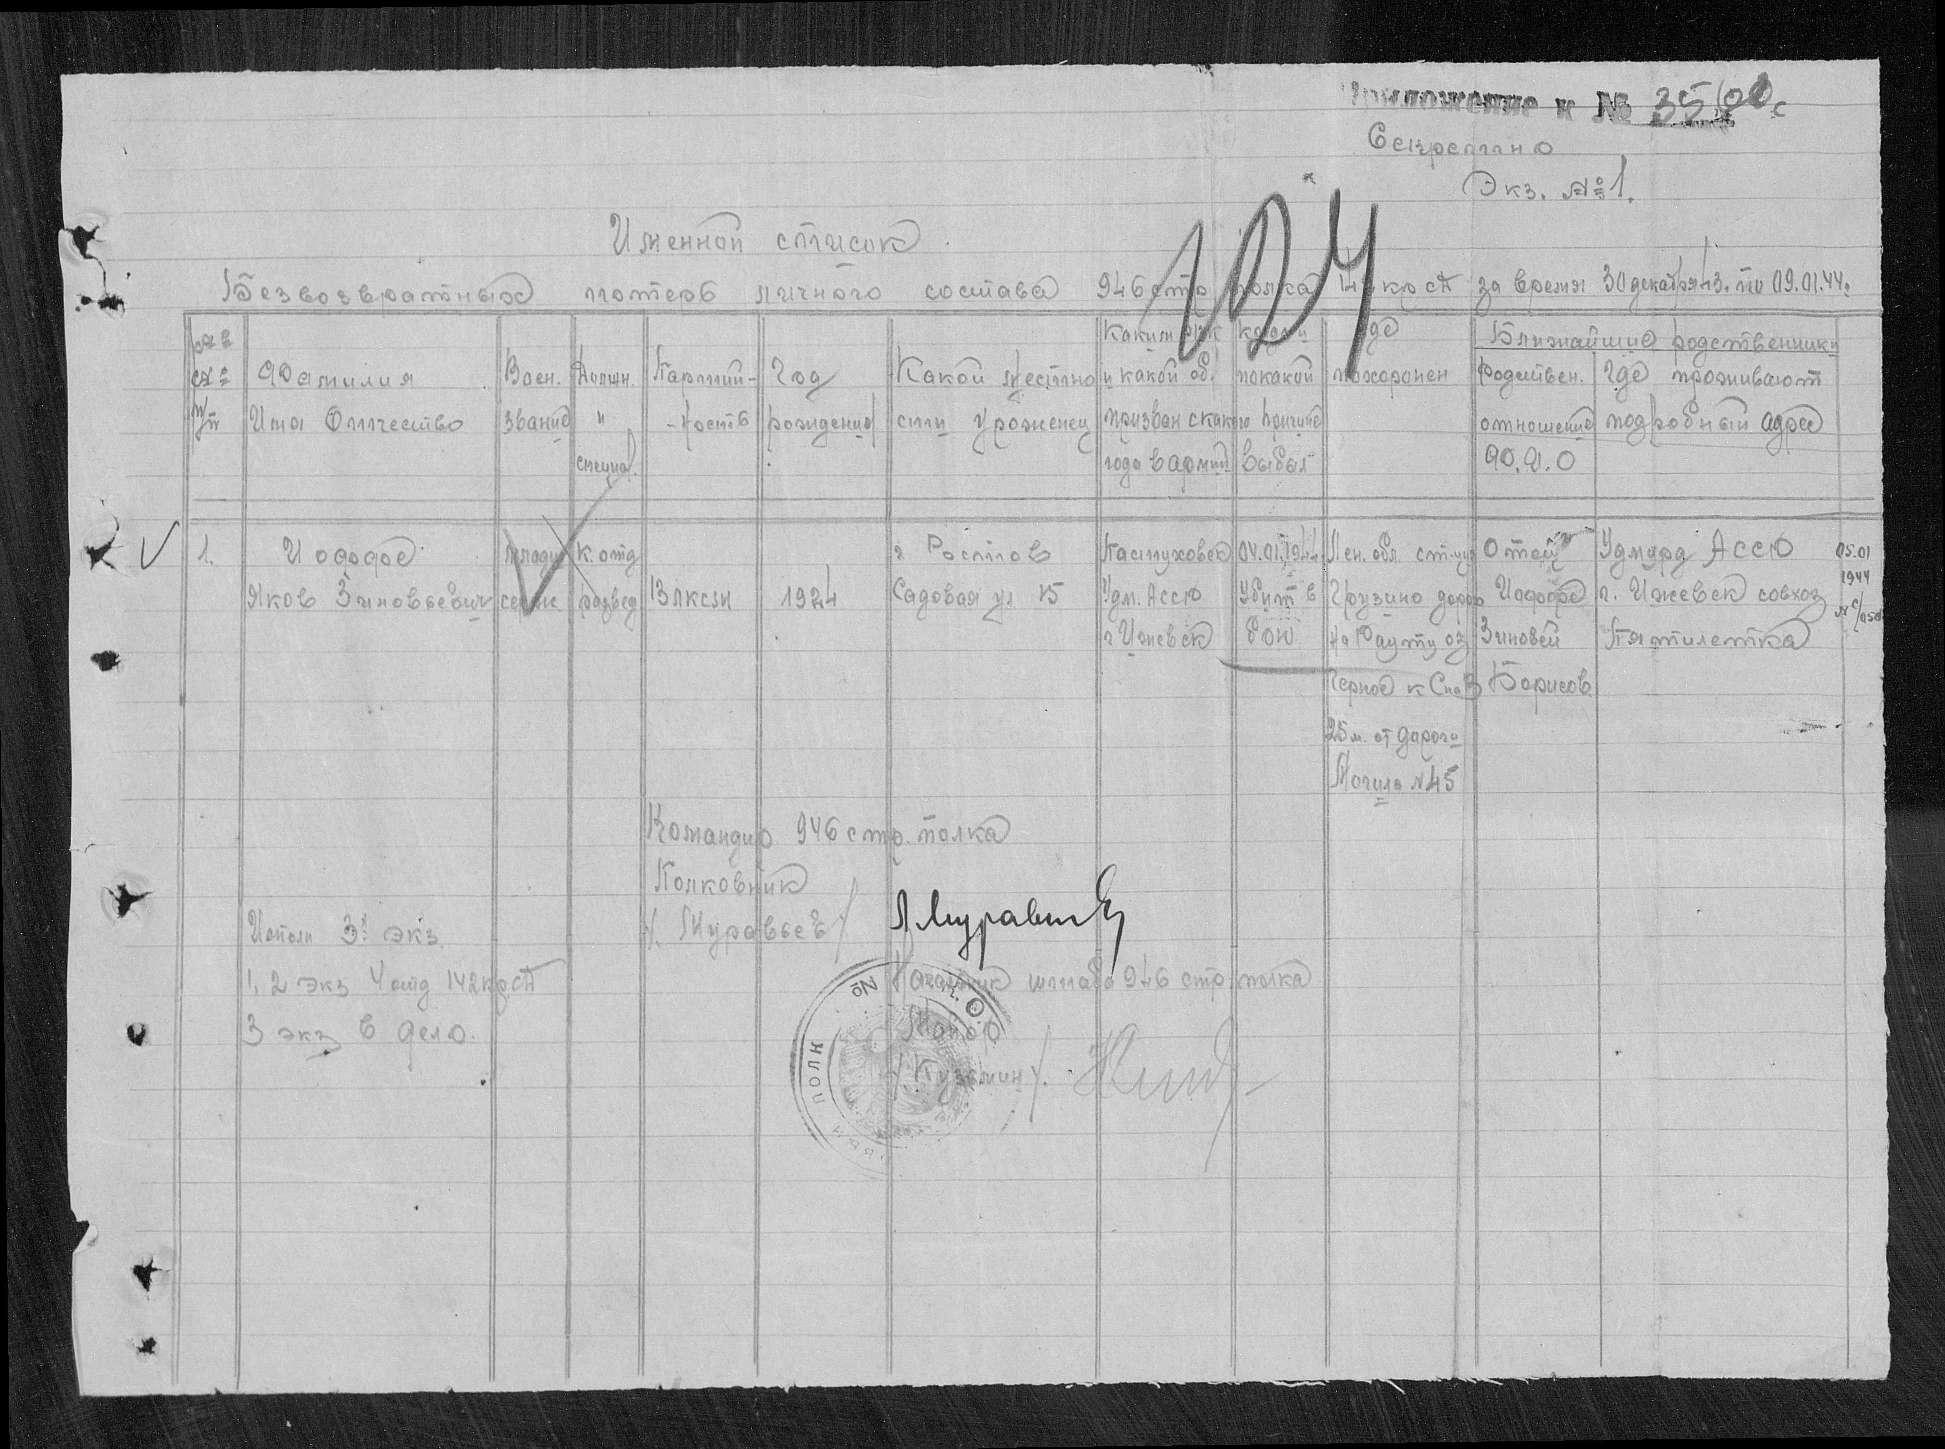 Приложение к № 3500с
Секретно
Экз. №1.
124
Именной список
Безвозвратных потерь личного состава 946 стр полка 142 кр сд за время 30 декабря 43. по 09.01.44г
№№ п/п
Фамилия Имя Отчество
Воен. звание
Должн. и специал.
Партий-ность
Год рождения
Какой местности уроженец
Каким РВК и какой об. призван с какого года в армии
когда и по какой причине выбыл
где похоронен
Ближайшие родственники
Родствен. отношение Ф.И.О
Где проживают подробный адрес
1.
Иоффе Яков Зиновьевич
младш сержс
к. отд развед
ВЛКСМ
1924
г Ростов Садовая ул 15
Удм. АССР г Ижевск
04.01.1944 Убит в бою
Лен. обл. ст.
Грузино дорога
оз Черное к
25 м. от дороги
Могила №45
Отец Иоффе Зиновей Борисов
Удмурд АССР г. Ижевск совхоз Пятилетка
05.01 1944
Командир 946 стр. полка
Полковник
/ Муравьев /
Начальник штаба 946 стр полка
Майор
/ Кузьмин /
Исполн 3 экз.
1, 2 экз 4 отд 142 кр сд
3 экз в дело.
№
полк